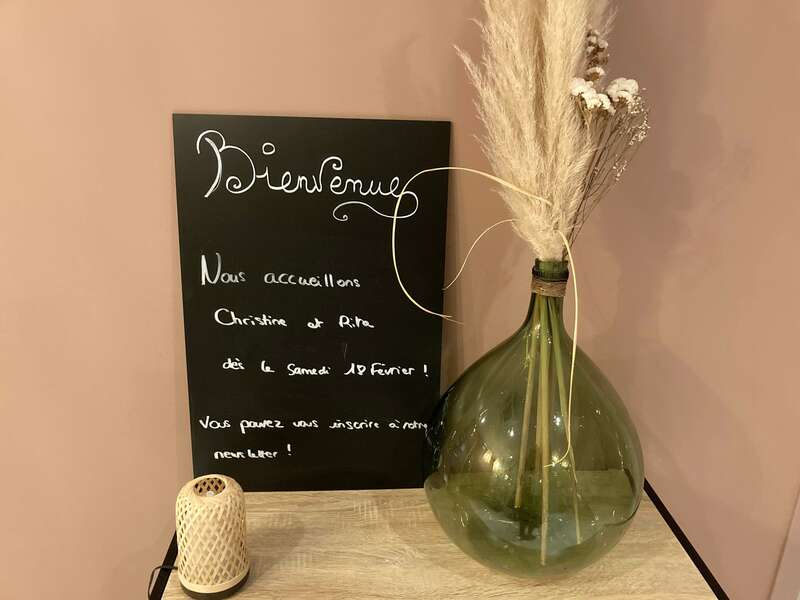 Bienvenue
Nous accueillons
Christine et Rita
dès le Samedi 18 Février !
Vous pouvez vous inscrire à notre
newsletter !